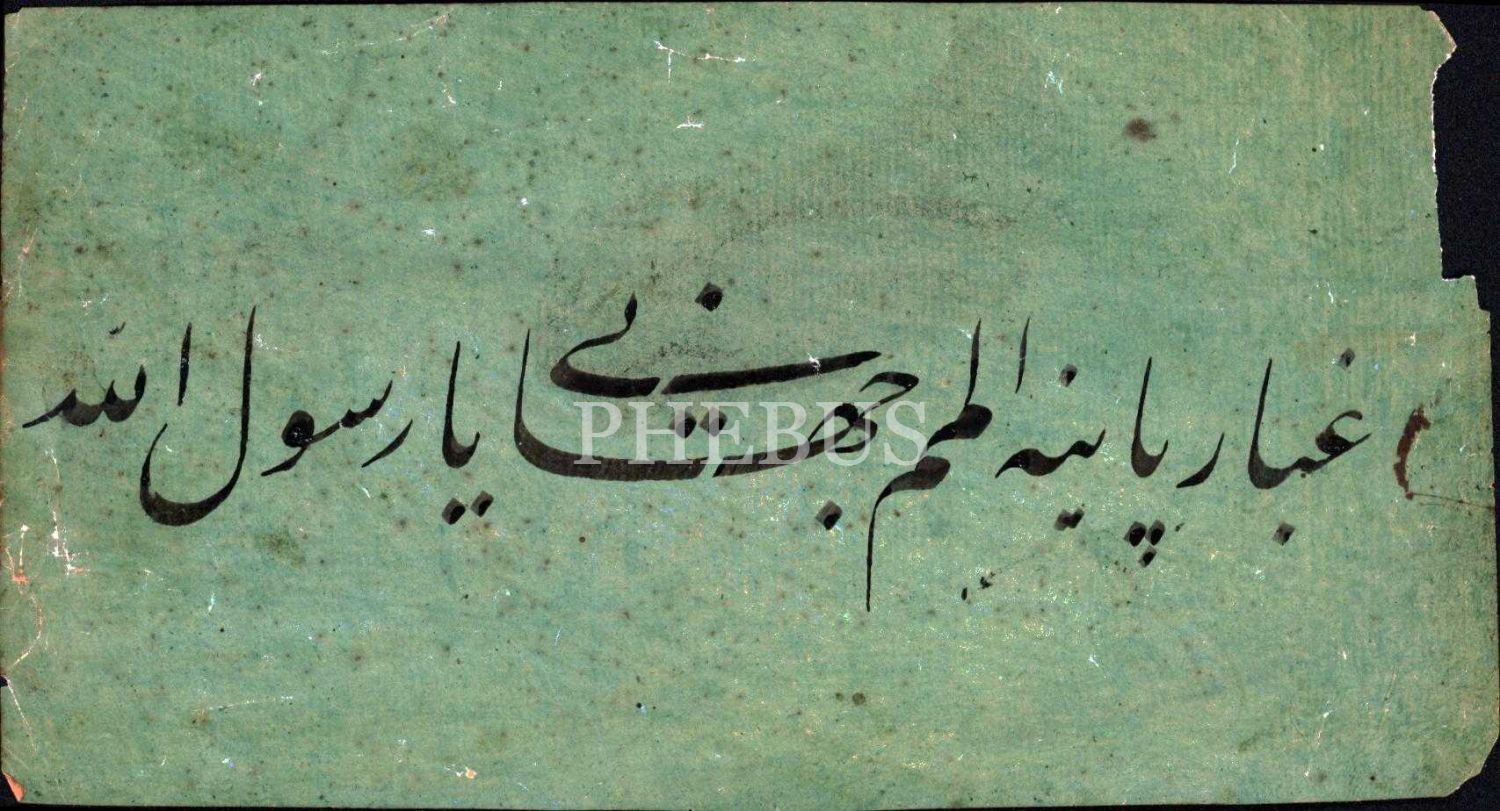 غبار پاینه المم جهانی یا رسول الله
PHEBUS